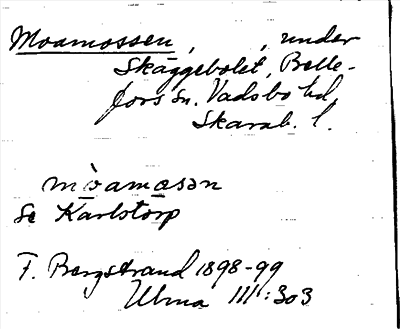 Moamossen, , under
Skäggebolet, Belle-
fors sn. Vadsbo hd,
Skarab. l.
mòamasən
Se Karlstorp
F. Bergstrand 1898-99
Ulma 111:303